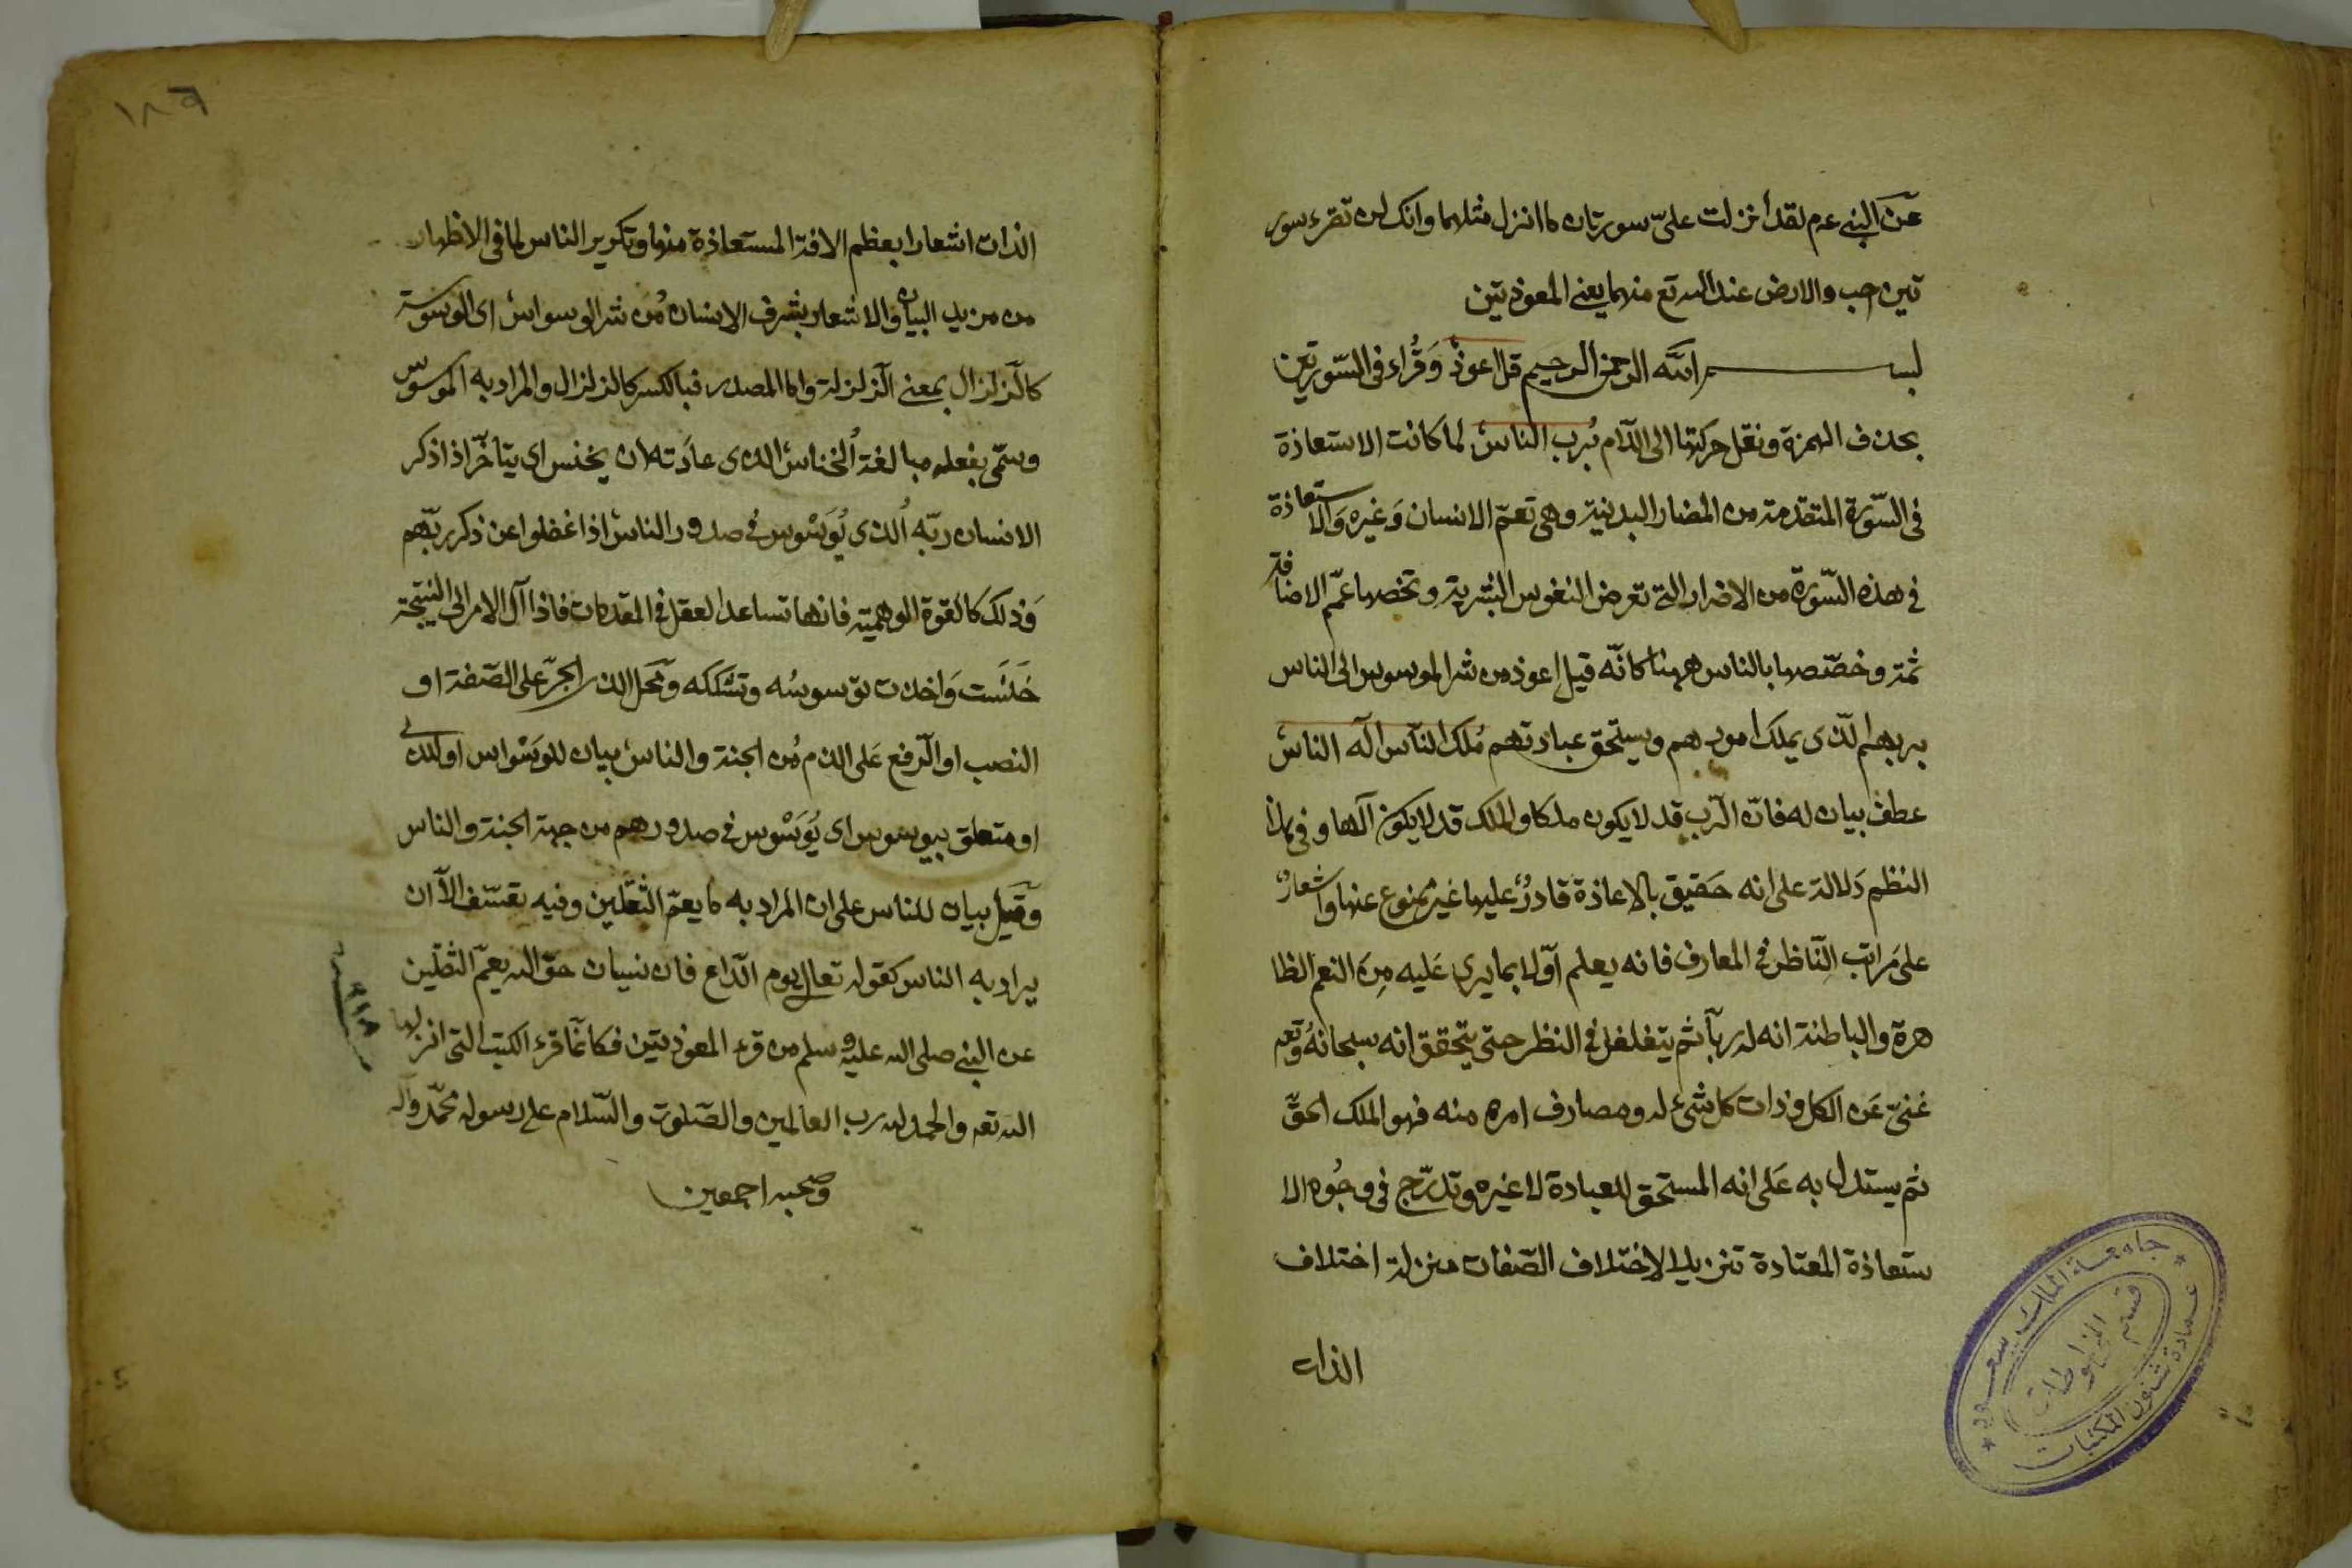 عن النبي عم لقد أنزلت عليّ سورتان ما انزل مثلهما وانك لن تقرء سور
تين احب والارضى عند الله تع منهما يعني المعوذتين
بســـــــم الله الرحمن الرحيم قل اعوذ وقُراء في السّورتين
بحذف الهمزة ونقل حركتها الى اللّام برب الناس لما كانت الاستعاذة
في السّورة المتقدمة من المضار البدنية وهى تعمّ الانسان وَغيره وَالاستعاذة
في هذه السّورة من الاضرار التي تعرض النفوس البشرية وتخصها عمّم الاضافة
ثمة وخصّصها بالناس ههنا كانّه قيل اعوذ من شر الموسوس الى الناس
بربهم الّذى يملك امورهم ويستحق عبادتهم مَلك النّاس اله الناس
عطف بيان له فانّ الرّب قد لا يكون ملكا والملك قد لا يكون آلها وفي هذا
النظم دَلالة على انه حَقيق بالاعاذة قادرٌ عليها غير ممنوع عنها واشعارٌ
على مَراتب النّاظر في المعارف فانه يعلم اوّلا بما يرى عَليه مِنَ النعم الظا
هرة والباطنة انه له ربّا ثم يتغلغل في النظر حتى يتحقق انه سبحانهُ وتعم
غنىّ عَن الكل وذات كل شيء له ومصارف امره منه فهو الملك الحقّ
ثم يستدل به عَلى انه المستحق للعبادة لا غيره وتدرّج في وجُوه الا
ستعاذة المعتادة تنزيلا لاختلاف الصّفات منزلة اختلاف
الذات
١٨٦
الذات اشعارا بعظم الافة المستعاذة منها وتكرير الناس لما في الاظهار
من مزيد البيان والاشعار بشرف الانسان مُن شر الوسواس اى الوسوسة
كالزّلزال بمعنى الزّلزلة واما المصدر فبالكسر كالزلزال والمراد به الموسوس
وسمّى بفعله مبالغة الخناس الذى عادَته ان يخنس اى يتاخّر اذا ذكر
الانسان ربّه الذى يُوَسْوس في صدور الناس اذا غفلوا عن ذكر ربّهم
وَذلك كالقوة الوهميّة فانها تساعد العقل في المقدمات فاذا آل الامر الى النتيجة
خَنَسَت وَاخذت توسوسُه وتشككه ومَحل الذى الجرّ على الصّفة او
النصب او الرّفع عَلى الذم مُن الجنة والناس بيان للوَسْواس او للذى
او متعلق بيوسوس اى يُوَسْوس في صدورهم من جهة الجنة والناس
وَقيل بيان للناس على ان المراد به ما يعمّ الثقلين وفيه تعسّف الّا ان
يراد به الناس كقوله تعالى يوم الدّاع فان نسيان حقّ الله يعمّ الثقلين
عن النبي صلى الله عليه وسلم من قرء المعوذتين فكانّما قرء الكتب التى انزلها
الله تعم والحمد لله رب العالمين والصّلوت والسّلام على رسوله محمّد وآله
وصحبه اجمعين
جامعة الملك سعود
قسم المخطوطات
عمادة شئون المكتبات